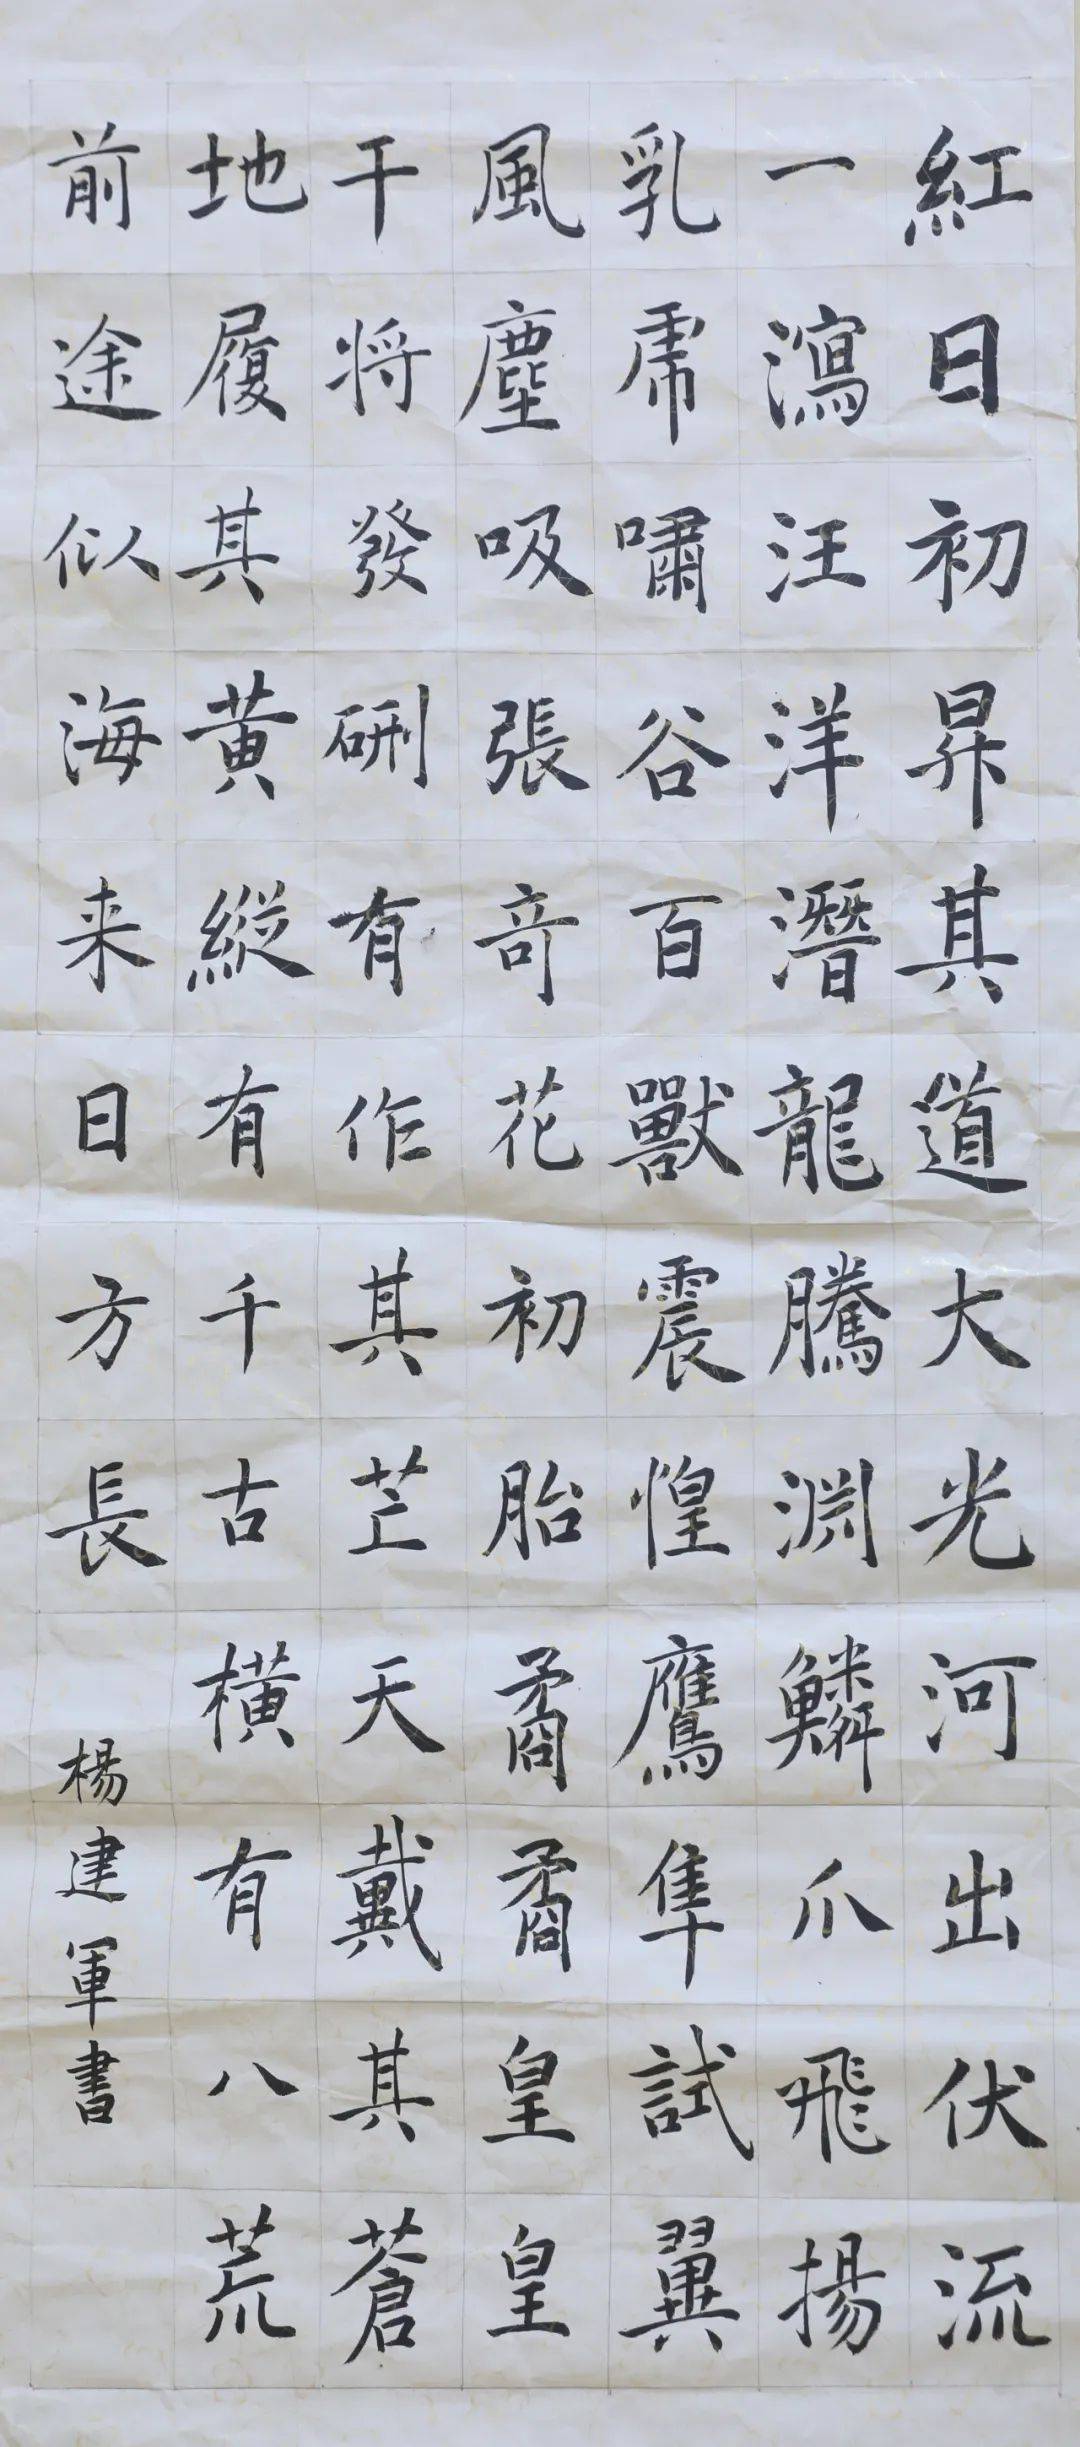 紅日初昇其道大光河出伏流
一瀉汪洋潛龍騰淵鱗爪飛揚
乳虎嘯谷百獸震惶鷹隼試翼
風塵吸張奇花初胎矞矞皇皇
干將發硎有作其芒天戴其蒼
地履其黃縱有千古橫有八荒
前途似海来日方長
楊建軍書